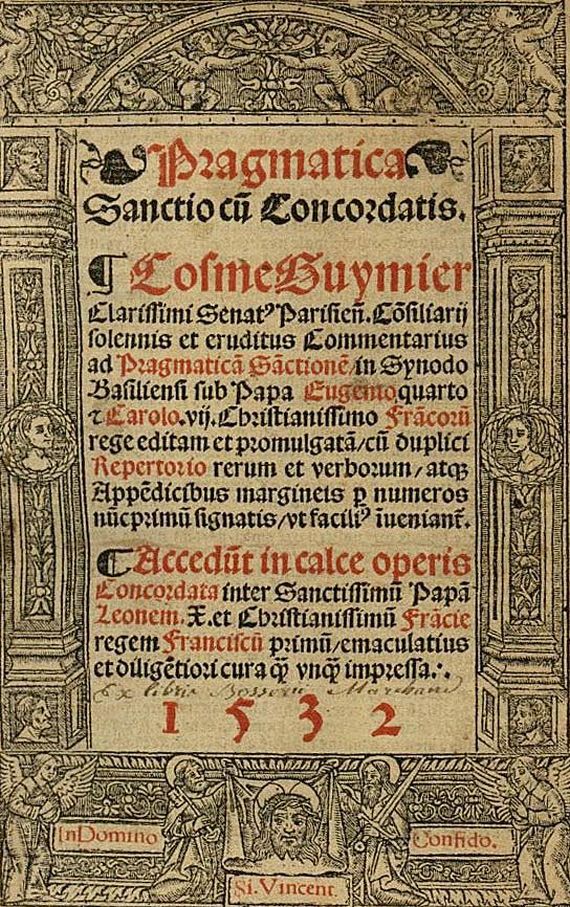 Pragmatica
Sanctio cū Concordatis.
¶ Cosme Guymier
Clarissimi Senatꝰ Parisieñ. Cōsiliarij
solennis et eruditus Commentarius
ad Pragmaticā Sāctionē/in Synodo
Basiliensi sub Papa Eugenio quarto
⁊ Carolo.vij. Christianissimo Frācorū
rege editam et promulgatā/cū duplici
Repertorio rerum et verborum/atqꝫ
Appēdicibus margineis ꝑ numeros
nūc primū signatis/vt faciliꝰ īueniant̄.
¶ Accedūt in calce operis
Concordata inter Sanctissimū Papā
Leonem.X. et Christianissimū Frācie
regem Franciscū primū/emaculatius
et diligētiori cura q̄ꝫ vnq̄ꝫ impressa.∴.
Ex libris
1532
In Domino
Confido.
Si. Vincent.